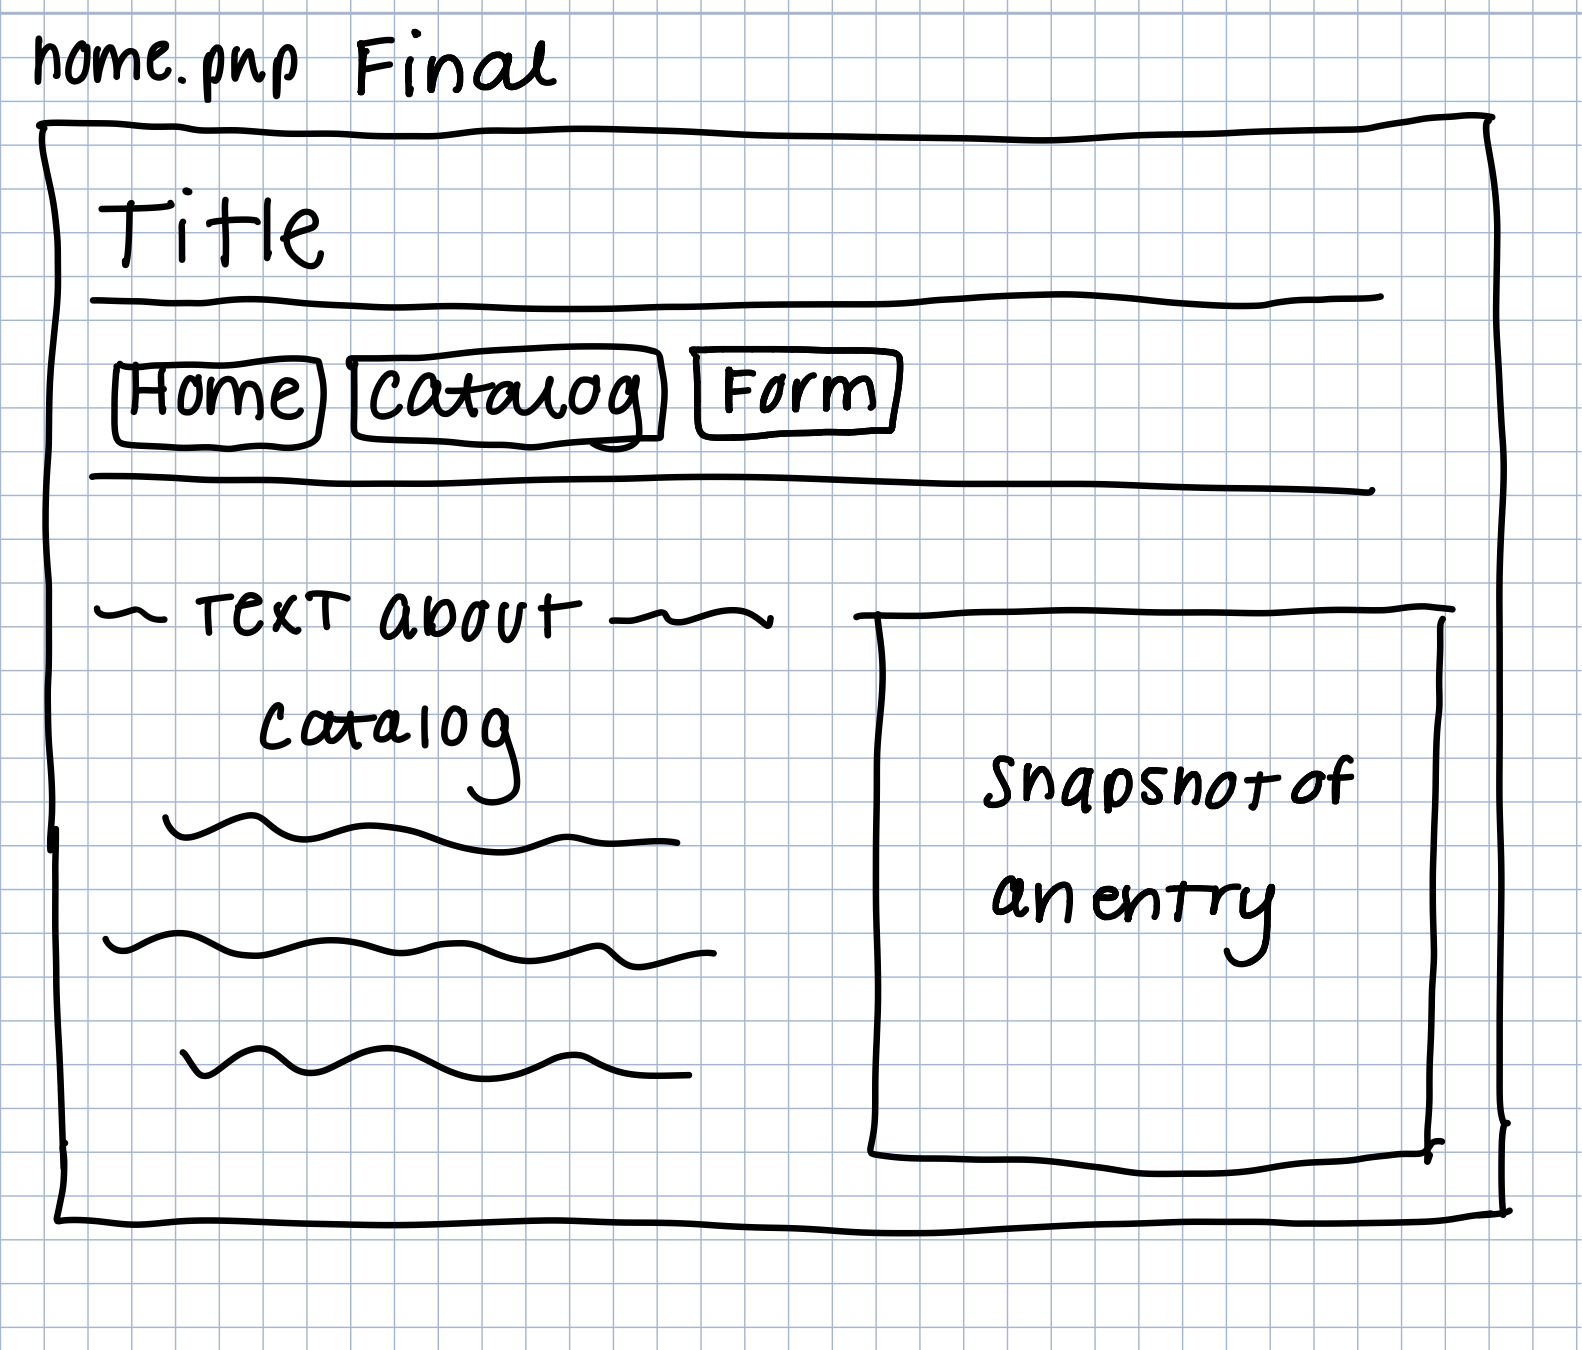 home.php Final
Title
Home Catalog Form
Text about
catalog
snapshot of
an entry